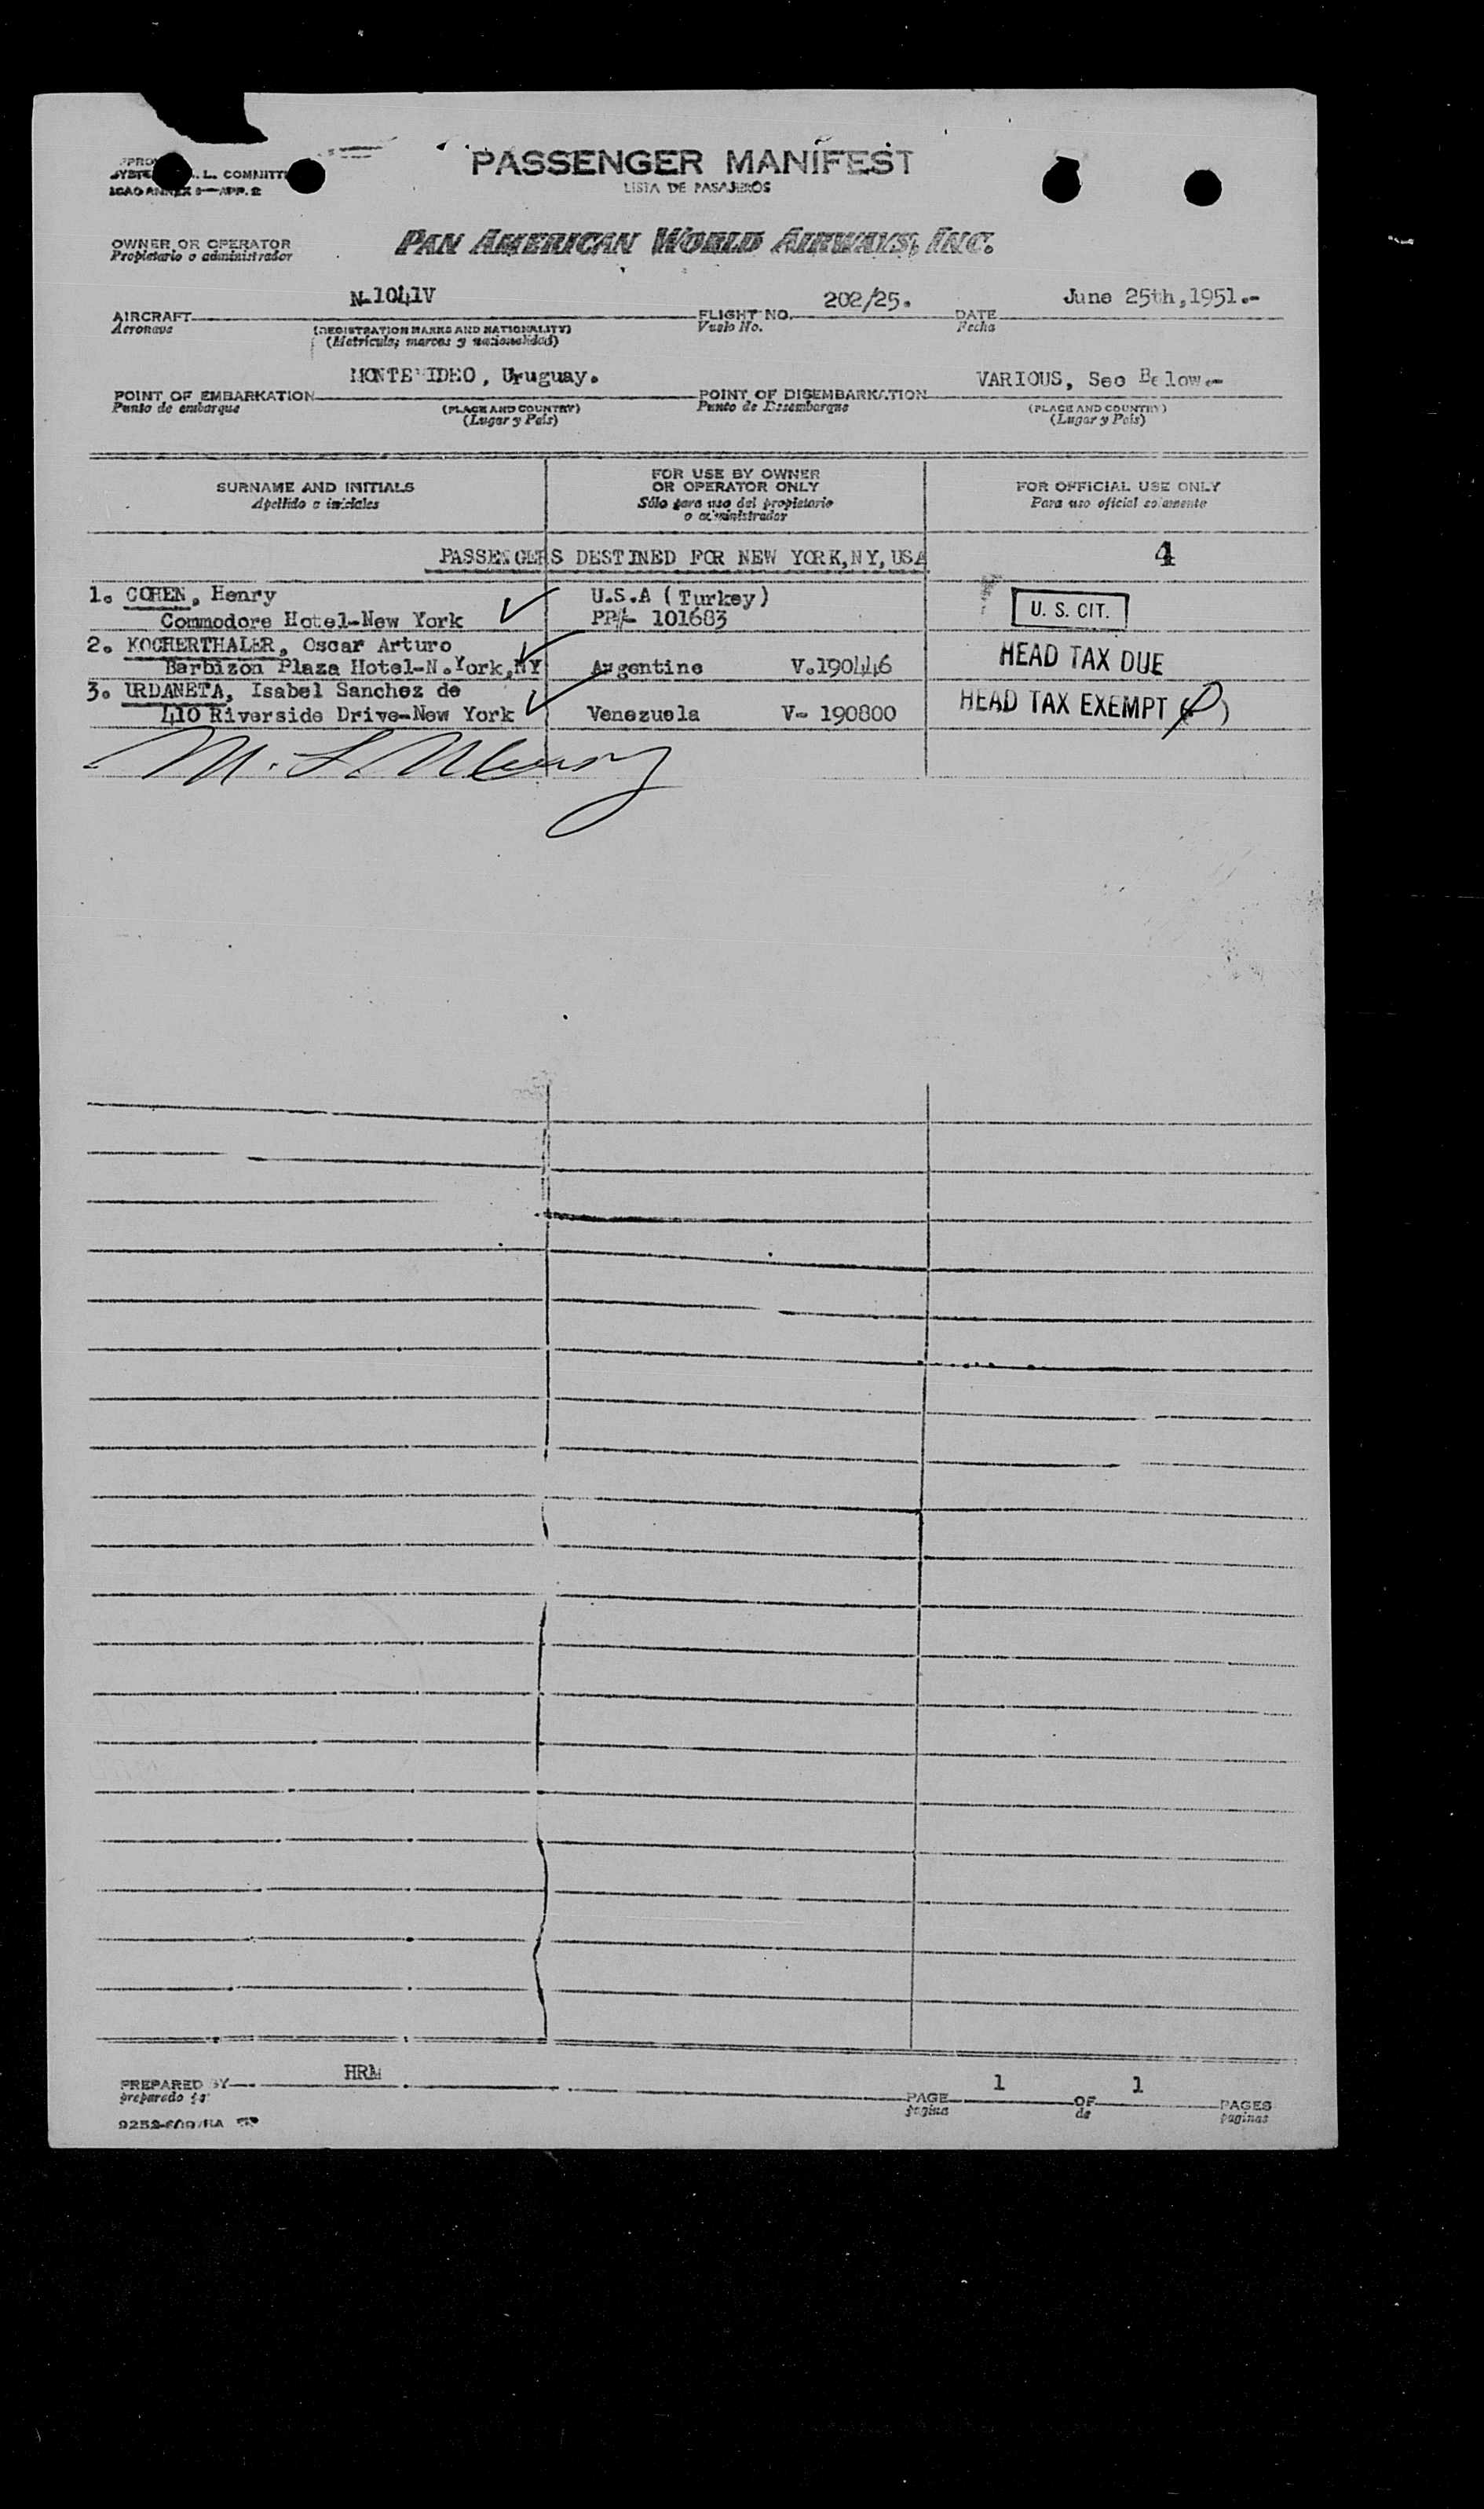 PASSENGER MANIFEST
LISTA DE PASAJEROS
L. COMMITT
ICAO ANNEX 9—APP. 2
OWNER OR OPERATOR
Propietario o administrador
PAN AMERICAN WORLD AIRWAYS, INC.
N-1041V 202/25. June 25th,1951.-
AIRCRAFT FLIGHT NO. DATE
Aeronave Vuelo No. Fecha
(REGISTRATION MARKS AND NATIONALITY)
(Matricula; marcas y nacionalidad)
MONTEVIDEO, Uruguay. VARIOUS, See Below.-
POINT OF EMBARKATION POINT OF DISEMBARKATION
Punto de embarque Punto de Desembarque
(PLACE AND COUNTRY) (PLACE AND COUNTRY)
(Lugar y País) (Lugar y País)
SURNAME AND INITIALS
Apellido e iniciales
FOR USE BY OWNER
OR OPERATOR ONLY
Sólo para uso del propietario
o administrador
FOR OFFICIAL USE ONLY
Para uso oficial solamente
PASSENGERS DESTINED FOR NEW YORK,NY,USA 4
1. COHEN, Henry U.S.A (Turkey)
Commodore Hotel-New York PP#- 101683 U. S. CIT.
2. KOCHERTHALER, Oscar Arturo
Barbizon Plaza Hotel-N.York,NY Argentine V.190446 HEAD TAX DUE
3. URDANETA, Isabel Sanchez de
410 Riverside Drive-New York Venezuela V- 190800 HEAD TAX EXEMPT ( )
HRM 1 1
PREPARED BY PAGE OF PAGES
preparado pagina de paginas